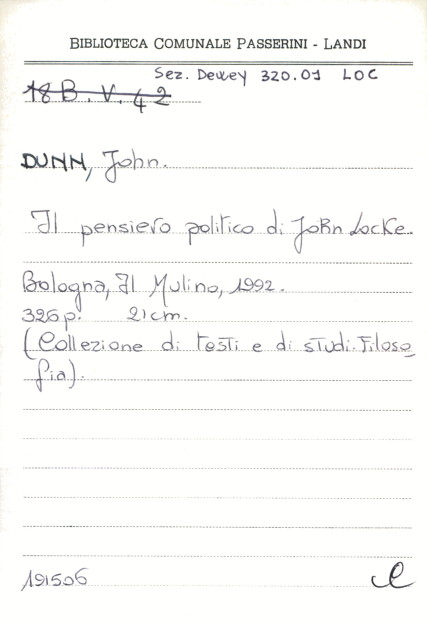 BIBLIOTECA COMUNALE PASSERINI - LANDI
Sez. Dewey 320.01 LOC
18 B. V. 42
DUNN, John.
Il pensiero politico di John Locke.
Bologna, Il Mulino, 1992.
326 p. 21 cm.
(Collezione di testi e di studi. Filoso
fia).
191506